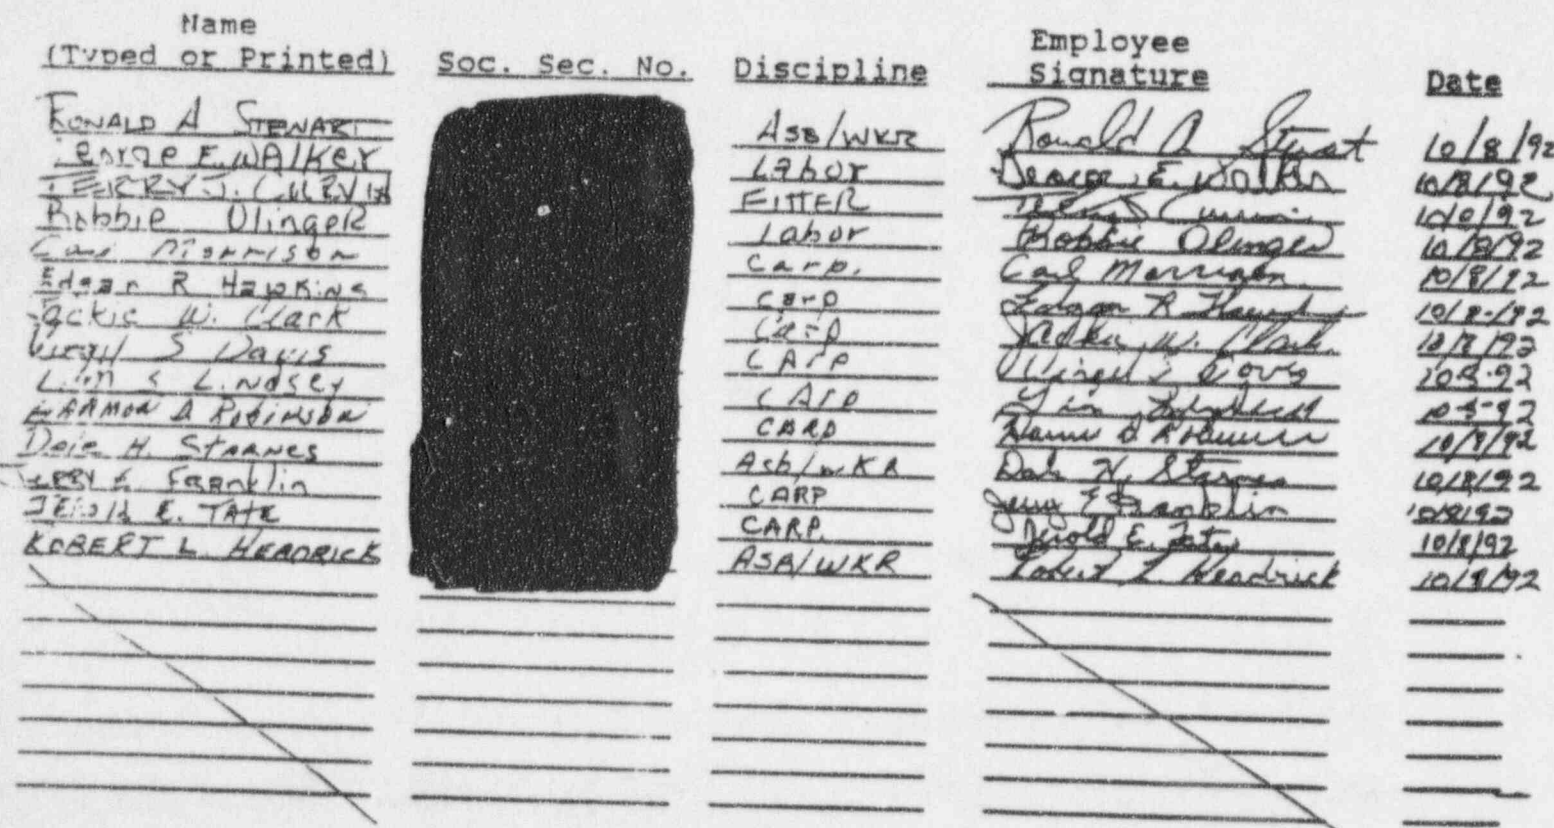 Name
(Typed or Printed) Soc. Sec. No. Discipline Employee Signature Date
RONALD A STEWART ASB/WKR Ronald A Stewart 10/8/92
George E. WALKER Labor George E. Walker 10/8/92
TERRY J. CURVIN FITTER 10/8/92
Robbie Olinger Labor Robbie Olinger 10/8/92
Carl Morrison Carp. Carl Morrison 10/8/92
Edgar R Hawkins Carp Edgar R Hawkins 10/8/92
Jackie W. Clark Carp Jackie W. Clark 10/8/92
Virgil S Davis CArp Virgil S Davis 10-8-92
L. Lindsey CArp 10-8-92
HARMON D ROBINSON CARP 10/8/92
Dale H. STARNES Asb/WKR Dale H. Starnes 10/8/92
Jerry E Franklin CARP Jerry E Franklin 10/8/92
Jerold E. TATE CARP. Jerold E. Tate 10/8/92
ROBERT L. HEADRICK ASB/WKR Robert L Headrick 10/8/92